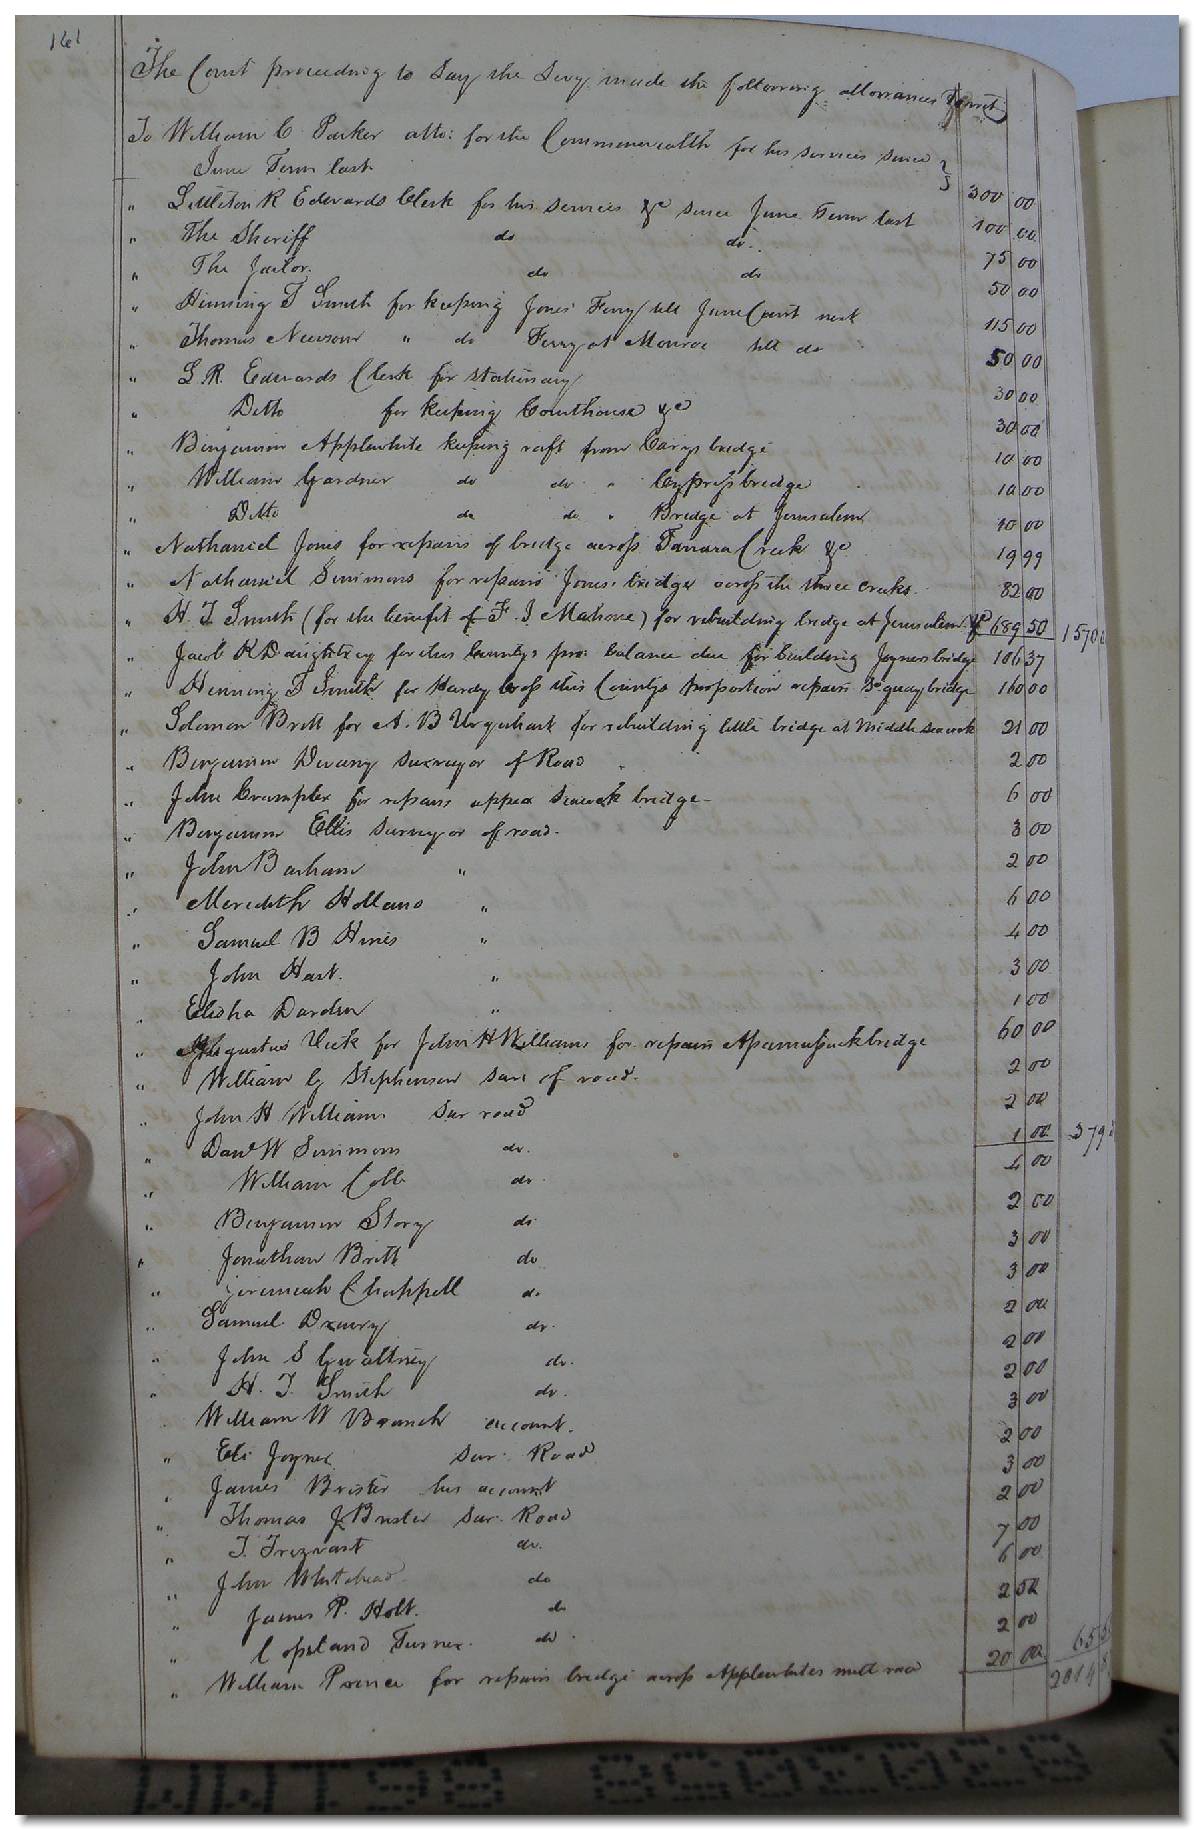 161
The Court proceeding to Lay the Levy made the following allowances to wit
To William C Parker atto: for the Commonwealth for his services since
June Term last 300 00
" Littleton R Edwards Clerk for his services &c since June Term last 100 00
" The Sheriff do do 75 00
" The Jailor. do do 50 00
" Henning T Smith for keeping Jones Ferry till June Court next 115 00
" Thomas Newsom " do Ferry at Monroe till do 50 00
" L. R. Edwards Clerk for stationary 30 00
" Ditto for keeping Courthouse &c 30 00
" Benjamin Applewhite keeping raft from Carys bridge 10 00
" William Gardner do do " Cypress bridge 10 00
" Ditto do do " Bridge at Jerusalem 10 00
" Nathaniel Jones for repairs of bridge across Tarrara Creek &c 19 99
" Nathaniel Simmons for repairs Jones. bridge across the three creeks. 82 00
" H. T. Smith (for the benefit of F. J. Mahone) for rebuilding bridge at Jerusalem &c 689 50 1570
" Jacob R Daughtrey for this Countys pro: balance due for building Joyners bridge 106 37
" Henning T Smith for Hardy Cross this Countys proportion repairs bridge 160 00
" Solomon Britt for A. B Urquhart for rebuilding little bridge at Middle Seacock 21 00
" Benjamin Devany Surveyor of Road 2 00
" John Crumpler for repairs upper Seacock bridge 6 00
" Benjamin Ellis Surveyor of road. 3 00
" John Barham " 2 00
" Meredith Holland " 6 00
" Samuel B Hines " 4 00
" John Hart. " 3 00
" Elisha Darden " 1 00
" Augustus Vick for John H Williams for repairs bridge 60 00
" William G Stephenson Sur: of road. 2 00
" John H Williams Sur road 2 00
" Danl W Simmons do. 1 00 379
" William Cobb do 4 00
" Benjamin Story do 2 00
" Jonathan Britt do 3 00
" Jeremiah Chappell do 3 00
" Samuel Drewry do. 2 00
" John S Gwaltney do. 2 00
" H. T. Smith do. 2 00
William W Branch account. 3 00
" Eli Joyner Sur. Road 2 00
" James Brister his account 3 00
" Thomas J Brister Sur. Road 2 00
" T. Trezvant do. 7 00
" John Whitehead do 6 00
" James P. Holt. do 2 52
" Copeland Turner. do 2 00
" William Prince for repairs bridge across Applewhites mill race 20 00